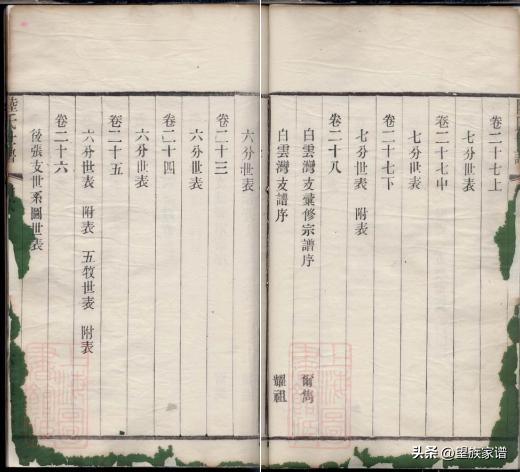 卷二十七上
七分世表
卷二十七中
七分世表
卷二十七下
七分世表 附表
卷二十八
白雲灣支彙修宗譜序 爾雋
白雲灣支譜序 耀祖
六分世表
卷二十三
六分世表
卷二十四
六分世表
卷二十五
六分世表 附表 五牧世表 附表
卷二十六
後張支世系圖世表
头条 @望族家谱